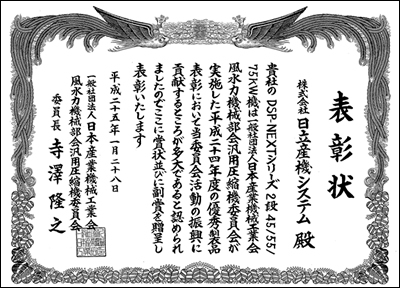 表彰状
株式会社 日立産機システム 殿
貴社の DSP NEXTシリーズ 2段 45/55/
75KW機は一般社団法人日本産業機械工業会
風水力機械部会汎用圧縮機委員会が
実施した平成二十四年度の優秀製品
表彰において当委員会活動の振興に
貢献するところが多大であると認められ
ましたのでここに賞状並びに副賞を贈呈し
表彰いたします
平成二十五年一月二十八日
一般社団法人 日本産業機械工業会
風水力機械部会汎用圧縮機委員会
委員長 寺澤隆之